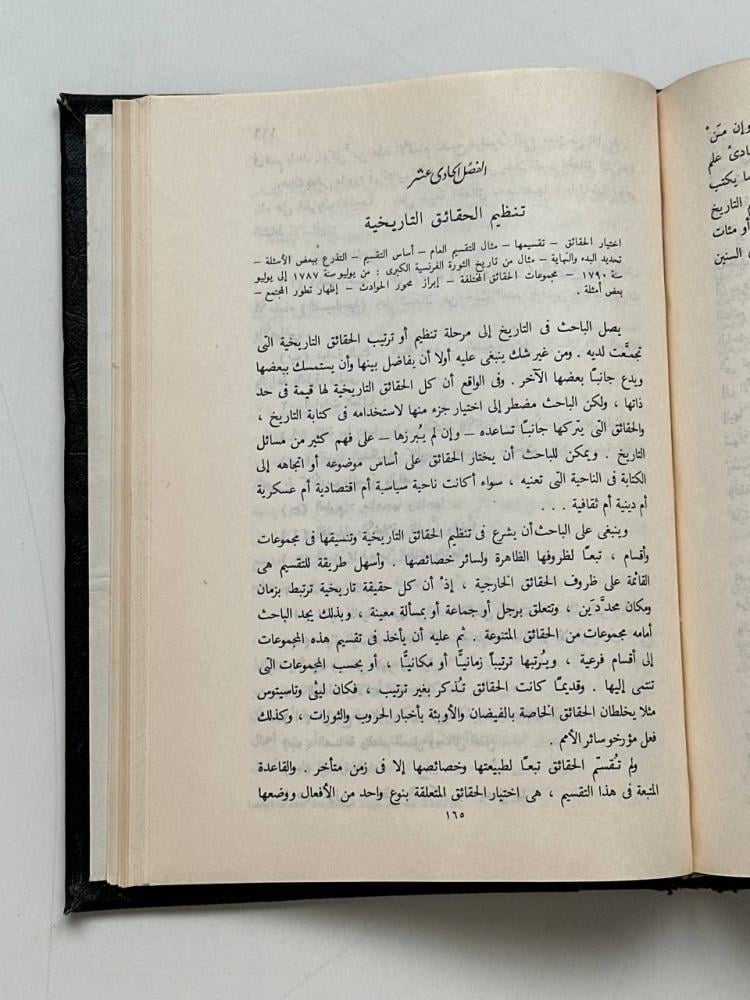 الفصل الحادى عشر
تنظيم الحقائق التاريخية
اختيار الحقائق – تقسيمها – مثال للتقسيم العام – أساس التقسيم – التذرع ببعض الأمثلة –
تحديد البدء والنهاية – مثال من تاريخ الثورة الفرنسية الكبرى : من يوليو سنة ١٧٨٧ إلى يوليو
سنة ١٧٩٠ – مجموعات الحقائق المختلفة – إبراز محور الحوادث – إظهار تطور المجتمع –
بعض أمثلة .
يصل الباحث فى التاريخ إلى مرحلة تنظيم أو ترتيب الحقائق التاريخية التى
تجمَّعت لديه . ومن غير شك ينبغى عليه أولا أن يفاضل بينها وأن يستمسك ببعضها
ويدع جانبًا بعضها الآخر . وفى الواقع أن كل الحقائق التاريخية لها قيمة فى حد
ذاتها ، ولكن الباحث مضطر إلى اختيار جزء منها لاستخدامه فى كتابة التاريخ ،
والحقائق التى يتركها جانبًا تساعده – وإن لم يُبرزها – على فهم كثير من مسائل
التاريخ . ويمكن للباحث أن يختار الحقائق على أساس موضوعه أو اتجاهه إلى
الكتابة فى الناحية التى تعنيه ، سواء أكانت ناحية سياسية أم اقتصادية أم عسكرية
أم دينية أم ثقافية . . .
وينبغى على الباحث أن يشرع فى تنظيم الحقائق التاريخية وتنسيقها فى مجموعات
وأقسام ، تبعًا لظروفها الظاهرة ولسائر خصائصها . وأسهل طريقة للتقسيم هى
القائمة على ظروف الحقائق الخارجية ، إذْ أن كل حقيقة تاريخية ترتبط بزمان
ومكان محدَّدَين ، وتتعلق برجل أو جماعة أو بمسألة معينة ، وبذلك يجد الباحث
أمامه مجموعات من الحقائق المتنوعة . ثم عليه أن يأخذ فى تقسيم هذه المجموعات
إلى أقسام فرعية ، ويُرتبها ترتيباً زمانيًّا أو مكانيًّا ، أو بحسب المجموعات التى
تنتمى إليها . وقديمًا كانت الحقائق تُذكر بغير ترتيب ، فكان ليڤى وتاسيتوس
مثلا يخلطان الحقائق الخاصة بالفيضان والأوبئة بأخبار الحروب والثورات ، وكذلك
فعل مؤرخو سائر الأمم .
ولم تُقسّم الحقائق تبعًا لطبيعتها وخصائصها إلا فى زمن متأخر . والقاعدة
المتبعة فى هذا التقسيم ، هى اختيار الحقائق المتعلقة بنوع واحد من الأفعال ووضعها
١٦٥
وإن منَنْ
علم
ما يكتب
التاريخ
أو مئات
السنين